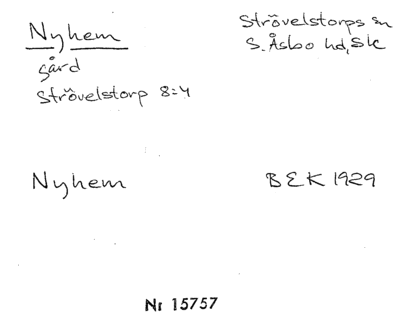 Nyhem
Strövelstorps sn
gård
S. Åsbo hd, Sk
Strövelstorp 8:4
Nyhem
BEK 1929
Nr 15757